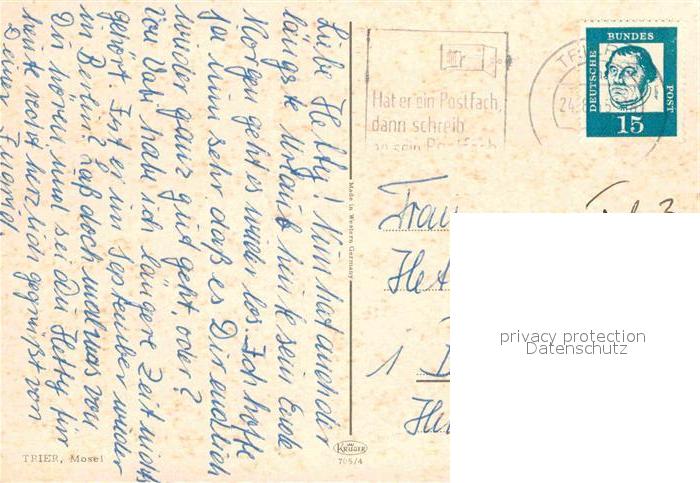 Liebe Hetty! Nun hat auch der
längste Urlaub heute sein Ende
Morgen geht es wieder los. Ich hoffe
ja nun sehr daß es Dir endlich
wieder ganz gut geht, oder?
von Vati hab ich längere Zeit nichts
gehört. Ist er im September wieder
in Berlin? Laß doch mal was von
Dir hören, und sei Du Hetty für
heute recht herzlich gegrüßt von
Deiner
TRIER, Mosel
Made in Western Germany
KRÜGER
705/4
Hat er ein Postfach,
dann schreib
an sein Postfach
TRIER
DEUTSCHE BUNDES POST
15
Frau
1
privacy protection
Datenschutz